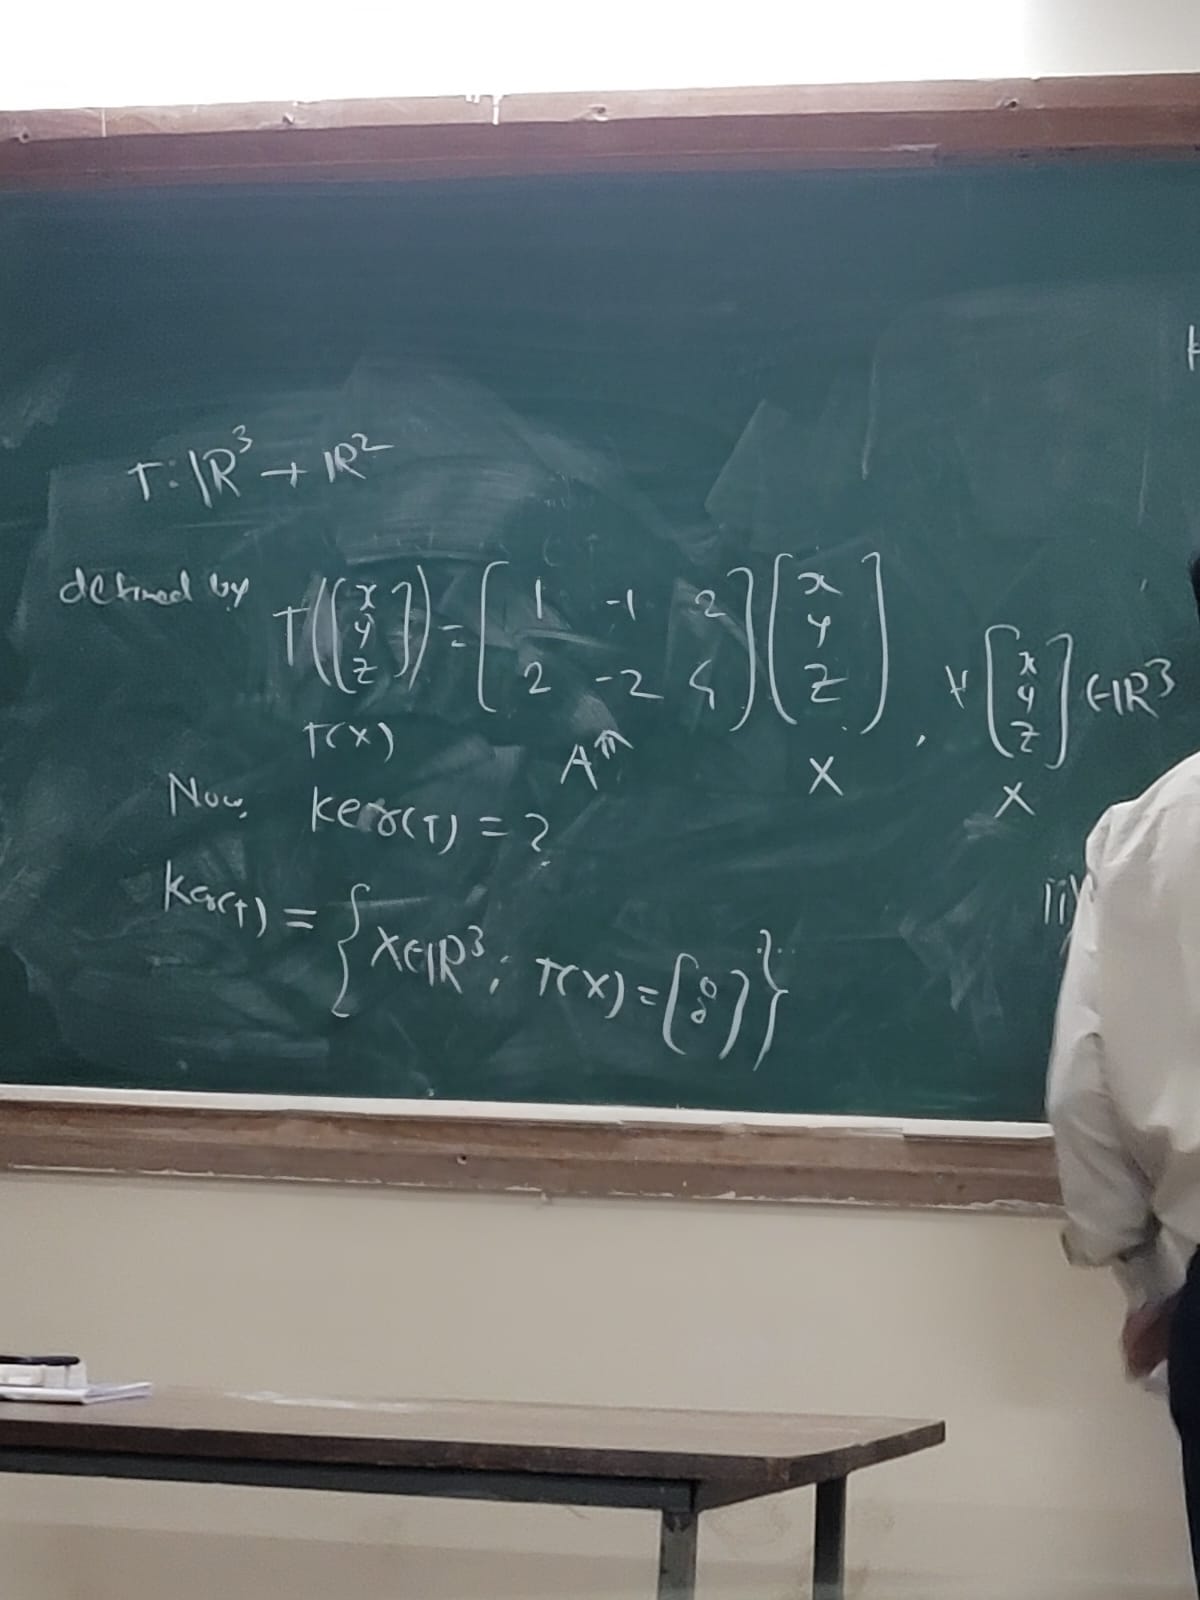 T: ℝ³ → ℝ²
defined by T([x y z]) = [1 -1 2; 2 -2 4] [x y z], ∀ [x y z] ∈ ℝ³
T(X) A X X
Now, ker(T) = ?
Ker(T) = {X∈ℝ³; T(X) = [0 0]}